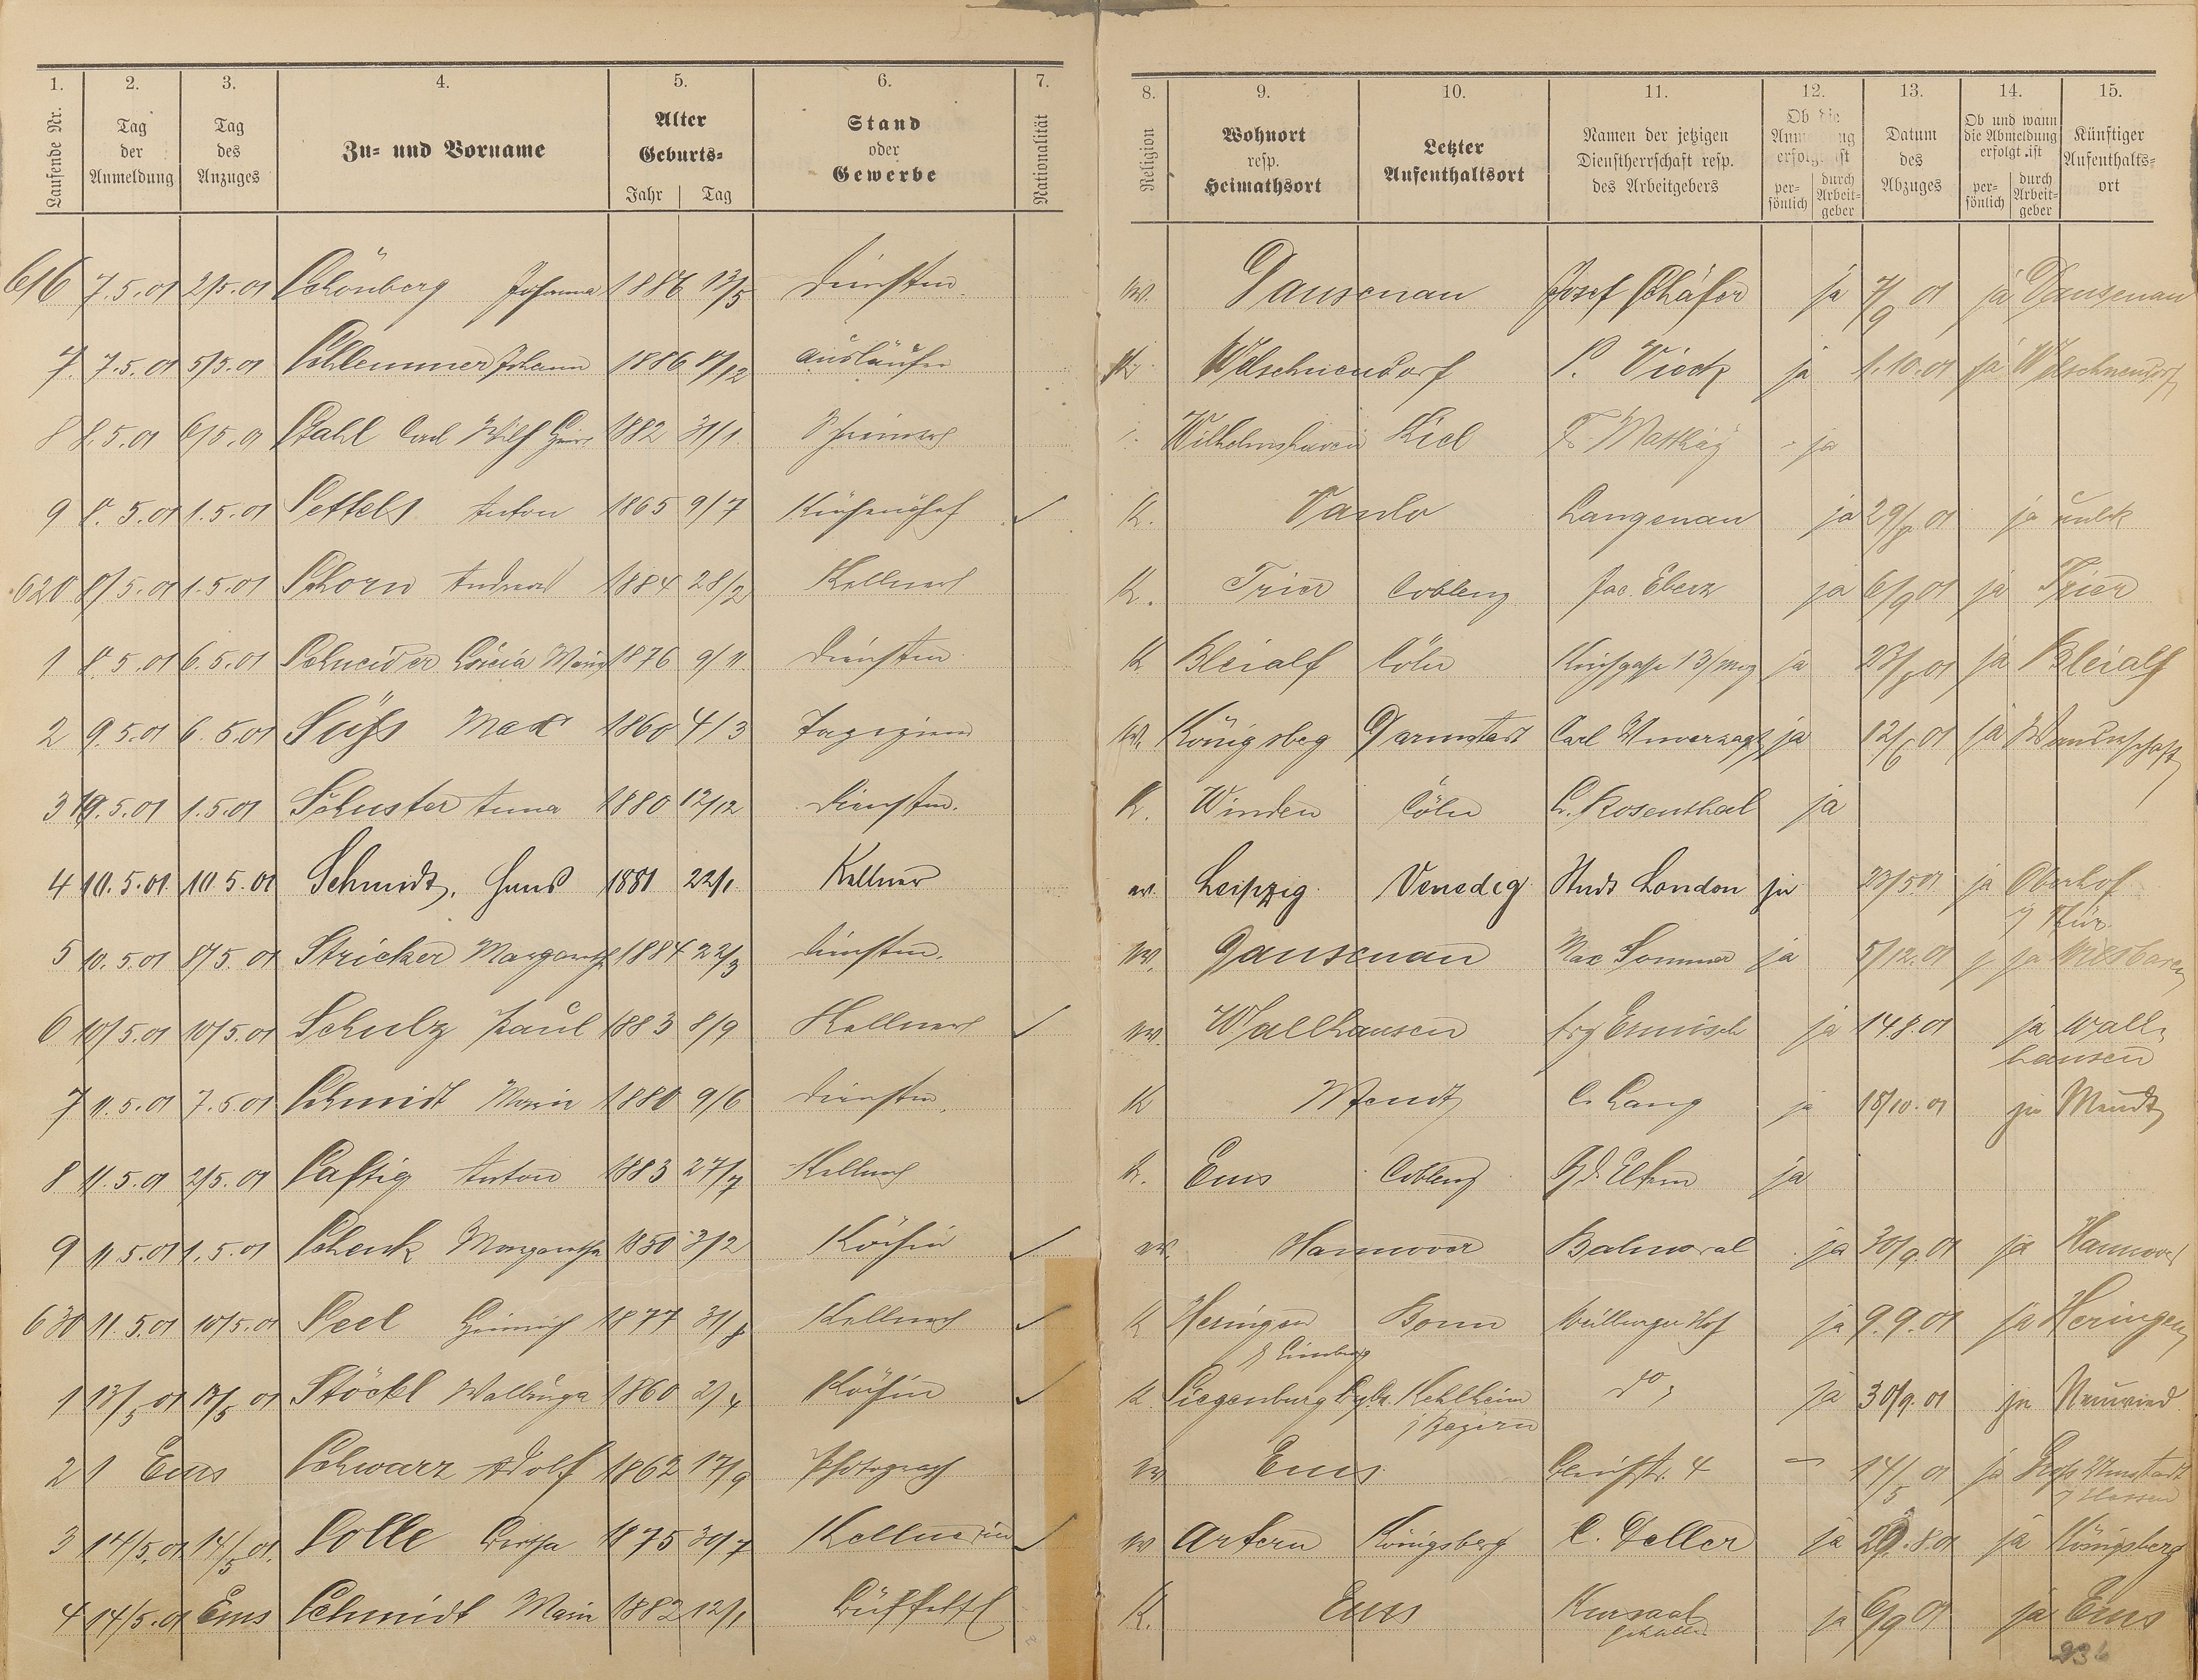 1. 2. 3. 4. 5. 6. 7. 8. 9. 10. 11. 12. 13. 14. 15.
Laufende Nr. Tag der Anmeldung Tag des Anzuges Zu- und Vorname Alter Geburts- Jahr Tag Stand oder Gewerbe Nationalität Religion Wohnort resp. Heimathsort Letzter Aufenthaltsort Namen der jetzigen Dienstherrschaft resp. des Arbeitgebers Ob die erfolgt ist per- sönlich durch Arbeit- geber Datum des Abzuges Ob und wann die Abmeldung erfolgt ist per- sönlich durch Arbeit- geber Künftiger Aufenthalts- ort
616 7.5.01 2/5.01 Schönberg Johanna 1886 13/5 Dienstm. ev. Dausenau Josef Schäfer ja 7/9 01 ja Dausenau
7 7.5.01 5/5.01 Schlemmer Johann 1886 8/12 Ausläufer Welschneudorf P. Vieck ja 1.10.01 ja Welschneudorf
8 8.5.01 6/5.01 Stahl Carl Wilh Heinr 1882 31/1 Schreiner Wilhelmshaven Kiel F. Matthäy - ja
9 8.5.01 1.5.01 Settels Anton 1865 9/7 Küchenchef ✓ K. Vanlo Langenau ja 29/8 01 ja unbk
620 8/5.01 1.5.01 Schorn Andreas 1884 28/2 Kellner K. Trier Coblenz Jac. Eberz ja 6/9 01 ja Trier
1 8.5.01 6.5.01 Schneider Lucia Maria 1876 9/11 Dienstm. K Bleialf Cöln Kirchgasse 13 ja 23/8 01 ja Bleialf
2 9.5.01 6.5.01 Süß Max 1860 4/3 Tapezierer ev. Königsbeg Darmstadt Carl Unverzagt ja 12/6 01 ja Wanderschaft
3 9.5.01 1.5.01 Schuster Anna 1880 12/12 Dienstm. K. Winden Cöln L. Rosenthal ja
4 10.5.01 10.5.01 Schmidt, Hans 1881 22/1 Kellner ev. Leipzig Venedig Stadt London ja 23/5 01 ja Oberhof
i/Thür.
5 10.5.01 8/5.01 Stricker Margareth 1884 22/3 Dienstm. ev. Dausenau Max Sommer ja 5/12.01 ja Wiesbaden
6 10/5.01 10/5.01 Schulz Paul 1883 8/9 Kellner ✓ ev. Wallhausen Frz Ermisch ja 14.8.01 ja Wall-
hausen
7 11.5.01 7.5.01 Schmidt Maria 1880 9/6 Dienstm. K Mendt C. Lang ja 18/10.01 ja Mendt
8 11.5.01 2/5.01 Saftig Anton 1883 27/7 Kellner K. Ems Coblenz ja
9 11.5.01 1.5.01 Schenk Margaretha 1850 3/2 Köchin ✓ ev. Hannover Balmoral ja 30/9.01 ja Hannover
630 11.5.01 10/5.01 Seel Heinrich 1877 31/8 Kellner ✓ K Heringen Bonn Weilburger Hof ja 9.9.01 ja Heringen
b/ Limburg
1 13/5 01 13/5 01 Stöckl Walburga 1860 2/4 Köchin ✓ K. Siegenburg Kehlheim do ja 30/9.01 ja Neuwied
i/Bayern
2 1 Ems Schwarz Adolf 1862 17/9 Photograph ev Ems 4 - 14/5 01 ja Groß Umstadt
i/Hessen
3 14/5.01 14/5 01. Solle Bertha 1875 30/7 Kellnerin ✓ ev Artern Königsberg C. Deller ja 29.8.01 ja Königsberg
4 14/5.01 Ems Schmidt Maria 1882 12/1 Büffettf K. Ems Kursaal ja 6/9 01 ja Ems